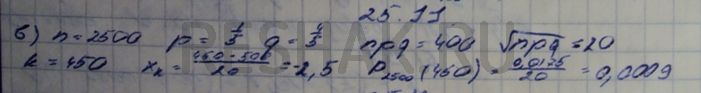 25.11
б) n = 2500 p = 1/5 q = 4/5 npq = 400 √npq = 20
k = 450 xₖ = (450 - 500)/20 = -2,5 P₂₅₀₀(450) = 0,0175/20 = 0,0009